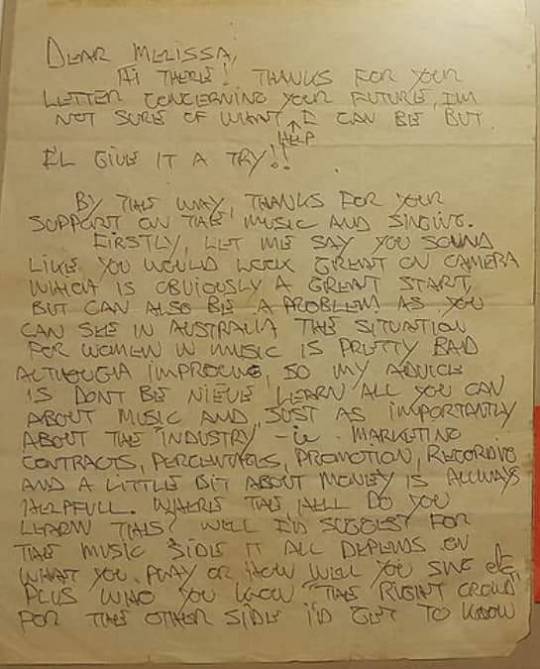 DEAR MELISSA,
HI THERE! THANKS FOR YOUR
LETTER CONCERNING YOUR FUTURE, I'M
NOT SURE OF WHAT I CAN BE BUT
HELP
I'LL GIVE IT A TRY!!
BY THE WAY, THANKS FOR YOUR
SUPPORT ON THE MUSIC AND SINGING.
FIRSTLY, LET ME SAY YOU SOUND
LIKE YOU WOULD LOOK GREAT ON CAMERA
WHICH IS OBVIOUSLY A GREAT START,
BUT CAN ALSO BE A PROBLEM AS YOU
CAN SEE IN AUSTRALIA THE SITUATION
FOR WOMEN IN MUSIC IS PRETTY BAD
ALTHOUGH IMPROVING, SO MY ADVICE
IS DONT BE NIEVE, LEARN ALL YOU CAN
ABOUT MUSIC AND, JUST AS IMPORTANTLY
ABOUT THE INDUSTRY - ie. MARKETING
CONTRACTS, PERCENTAGES, PROMOTION, RECORDING
AND A LITTLE BIT ABOUT MONEY IS ALLWAYS
HELPFULL. WHERE THE HELL DO YOU
LEARN THIS? WELL I'D SUGGEST FOR
THE MUSIC SIDE IT ALL DEPENDS ON
WHAT YOU PLAY OR HOW WELL YOU SING etc,
PLUS WHO YOU KNOW THE RIGHT CROWD
FOR THE OTHER SIDE I'D GET TO KNOW